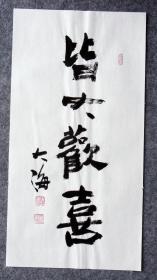 皆大歡喜
大海